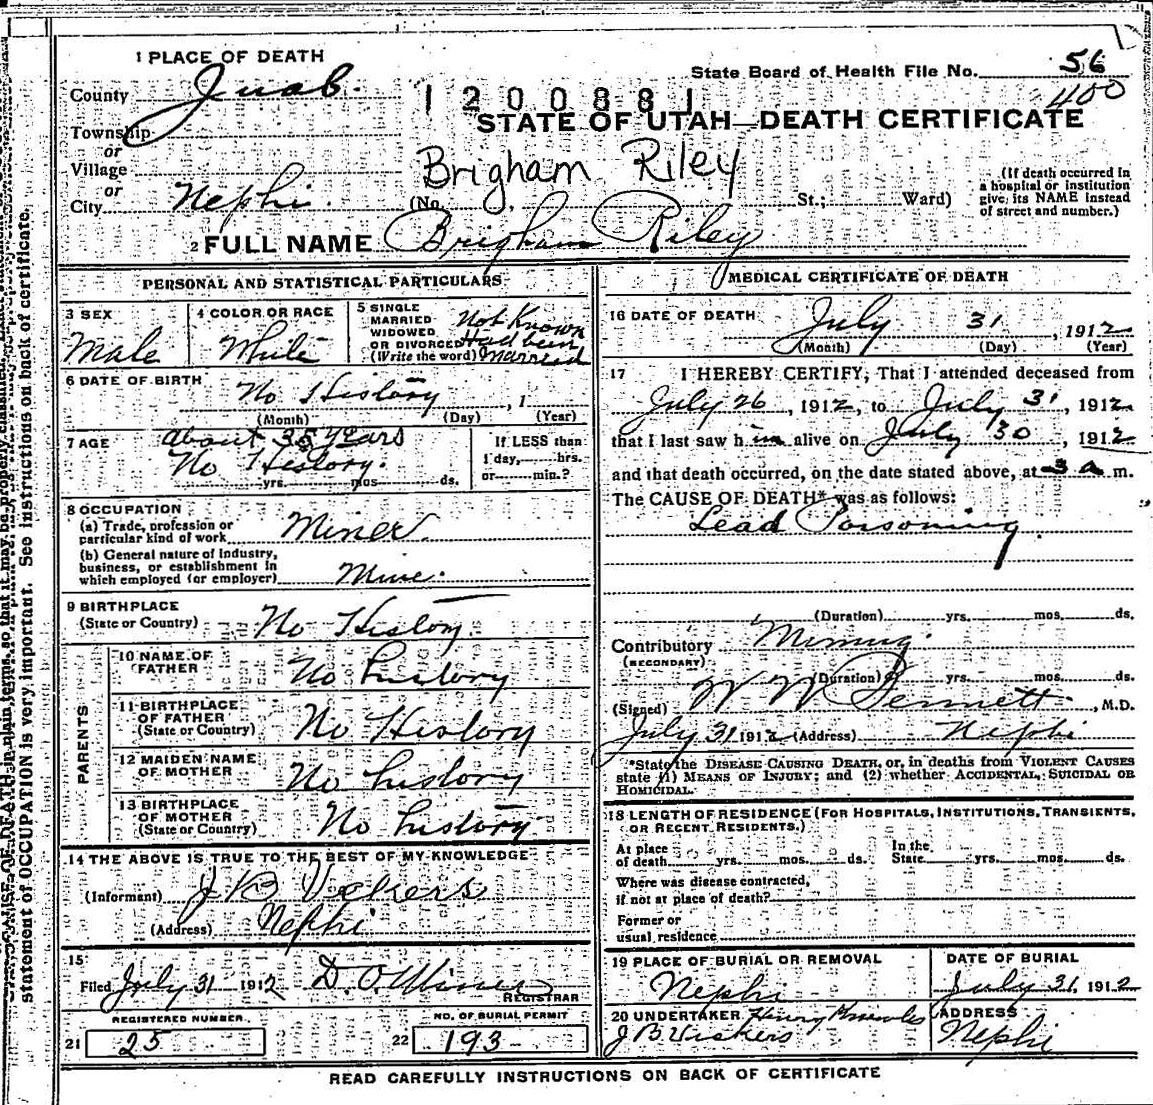 1 PLACE OF DEATH
State Board of Health File No. 56
400
County Juab.
1200881
STATE OF UTAH—DEATH CERTIFICATE
Township
or
Village
or
City Nephi.
Brigham Riley
(No. St.; Ward)
(If death occurred in
a hospital or institution
give its NAME instead
of street and number.)
2 FULL NAME Brigham Riley
PERSONAL AND STATISTICAL PARTICULARS
3 SEX
Male
4 COLOR OR RACE
White
5 SINGLE
MARRIED
WIDOWED
OR DIVORCED
(Write the word)
Not Known
Had been
Married
6 DATE OF BIRTH
No History, 1
(Month) (Day) (Year)
7 AGE
About 35 years
No History.
yrs. mos. ds.
If LESS than
1 day, hrs.
or min.?
8 OCCUPATION
(a) Trade, profession or
particular kind of work Miner.
(b) General nature of industry,
business, or establishment in
which employed (or employer) Mine.
9 BIRTHPLACE
(State or Country) No History.
PARENTS
10 NAME OF
FATHER No history
11 BIRTHPLACE
OF FATHER
(State or Country) No History
12 MAIDEN NAME
OF MOTHER No history
13 BIRTHPLACE
OF MOTHER
(State or Country) No history
14 THE ABOVE IS TRUE TO THE BEST OF MY KNOWLEDGE
(Informant) J B Vickers
(Address) Nephi
15
Filed July 31 1912 D. O. Miner
REGISTRAR
REGISTERED NUMBER.
21 25
NO. OF BURIAL PERMIT
22 193
MEDICAL CERTIFICATE OF DEATH
16 DATE OF DEATH
July 31, 1912
(Month) (Day) (Year)
17 I HEREBY CERTIFY, That I attended deceased from
July 26, 1912, to July 31, 1912
that I last saw him alive on July 30, 1912
and that death occurred, on the date stated above, at 3 a m.
The CAUSE OF DEATH* was as follows:
Lead Poisoning.
(Duration) yrs. mos. ds.
Contributory Mining.
(SECONDARY)
(Duration) yrs. mos. ds.
(Signed) W W, M.D.
July 31 1912 (Address) Nephi
*State the DISEASE CAUSING DEATH, or, in deaths from VIOLENT CAUSES
state (1) MEANS OF INJURY; and (2) whether ACCIDENTAL, SUICIDAL OR
HOMICIDAL.
18 LENGTH OF RESIDENCE (FOR HOSPITALS, INSTITUTIONS, TRANSIENTS,
OR RECENT RESIDENTS.)
At place
of death yrs. mos. ds.
In the
State yrs. mos. ds.
Where was disease contracted,
if not at place of death?
Former or
usual residence
19 PLACE OF BURIAL OR REMOVAL
Nephi
DATE OF BURIAL
July 31, 1912
20 UNDERTAKER Henry
J B Vickers
ADDRESS
Nephi
READ CAREFULLY INSTRUCTIONS ON BACK OF CERTIFICATE
statement of OCCUPATION is very important. See instructions on back of certificate.